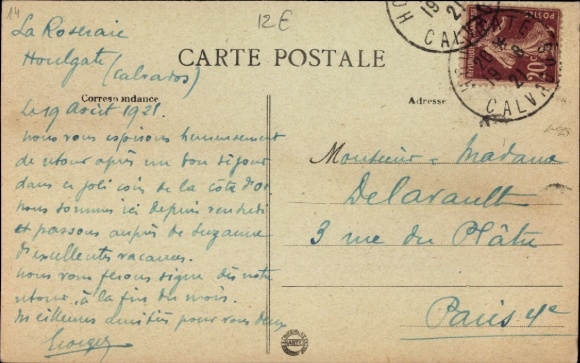 14
12 E
La Roseraie
Houlgate (Calvados)
CARTE POSTALE
Correspondance
Adresse
Le 19 Août 1921.
Nous vous espérons heureusement
de retour après un bon séjour
dans ce joli coin de la côte d'Or
Nous sommes ici depuis vendredi
et passons auprès de Suzanne
d'excellentes vacances.
Nous vous ferons signe dès notre
retour, à la fin du mois.
Meilleures amitiés pour vous deux
Georges
Monsieur - Madame
Delavault
3 rue du Plâtre
Paris 4e
20c
CALVADOS